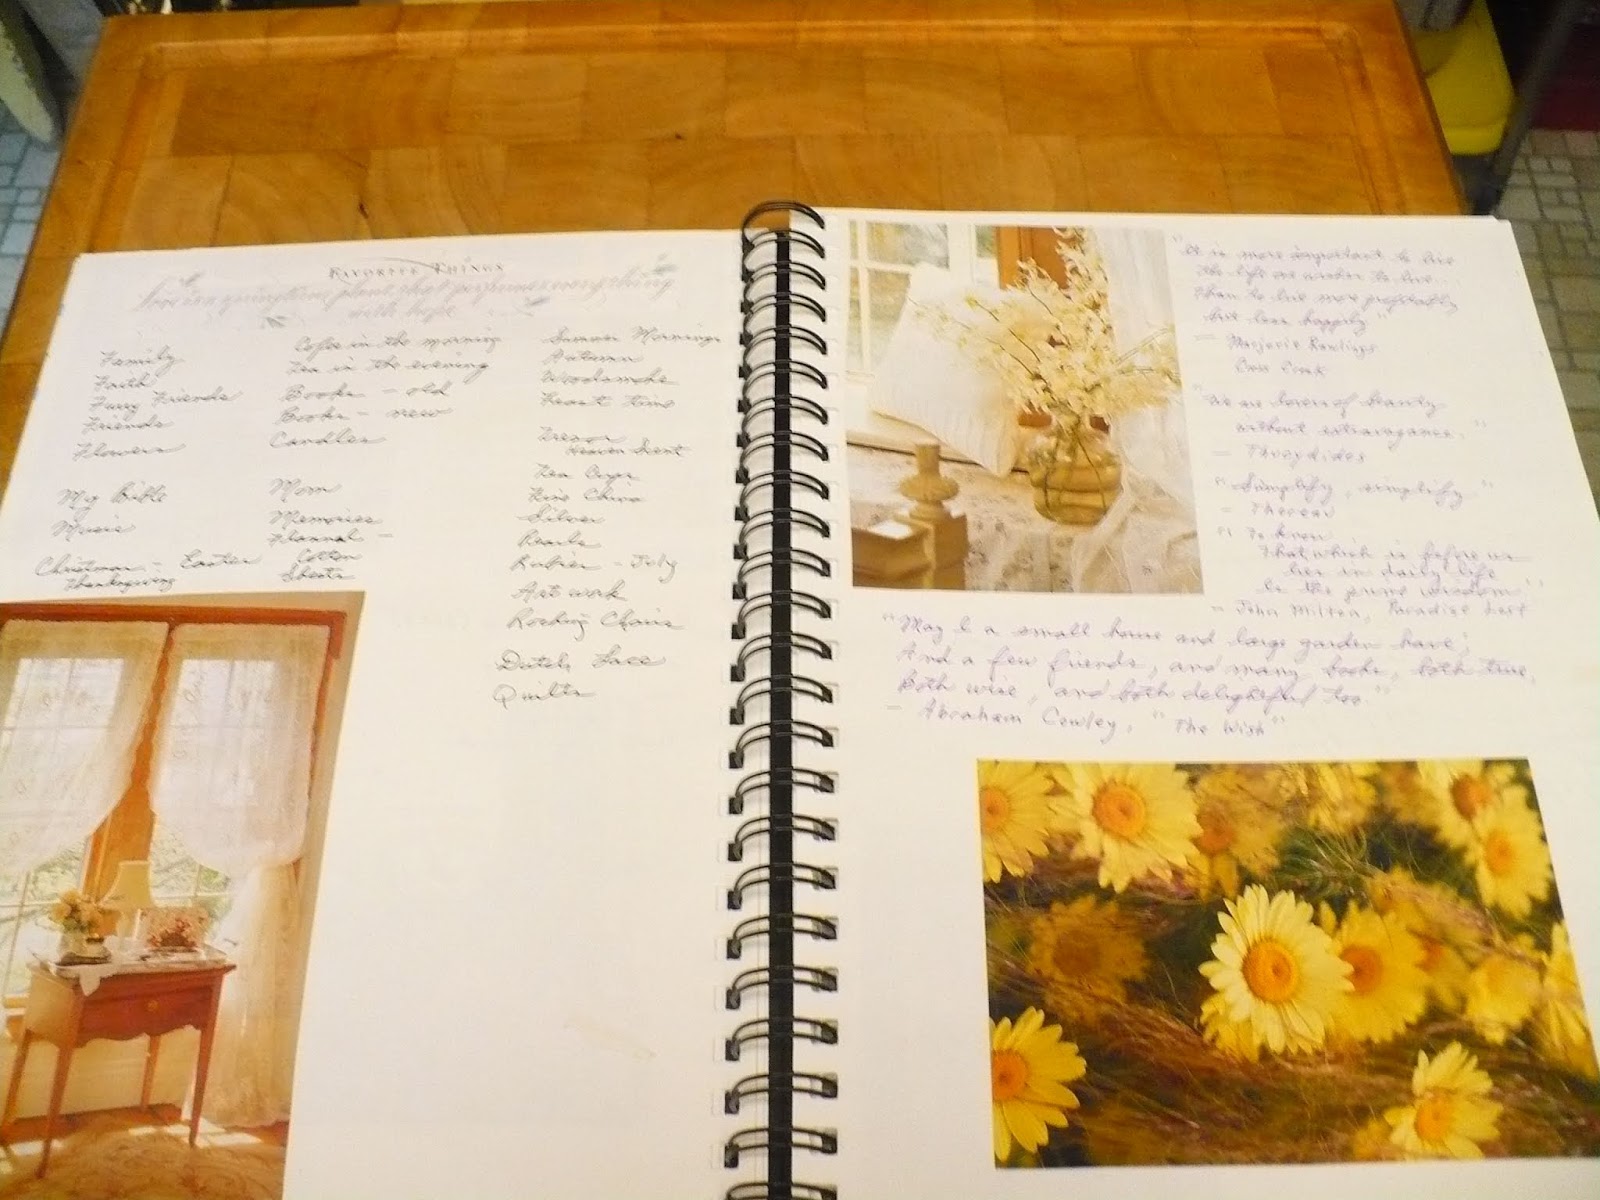 FAVORITE THINGS
Love is a springtime plant that perfumes everything
with hope
Family
Faith
Furry Friends
Friends
Flowers
My Bible
Music
Christmas - Easter
Thanksgiving
Coffee in the morning
Tea in the evening
Books - old
Books - new
Candles
Mom
Memories
Flannel -
Cotton
Sheets
Summer Mornings
Autumn
Woodsmoke
Trevor
Heaven Scent
Tea Cups
Fine China
Silver
Pearls
Rubies - July
Art work
Rocking Chairs
Dutch Lace
Quilts
"It is more important to live
the life one wishes to live...
than to live more profitably
but less happily"
— Marjorie Rawlings
"We are lovers of beauty
without extravagance."
— Thucydides
"Simplify, simplify"
- Thoreau
"To know
That which is before us
lies in daily life
Is the prime wisdom."
- John Milton, Paradise Lost
"May I a small house and large garden have;
And a few friends, and many books, both true,
Both wise, and both delightful too."
- Abraham Cowley, "The Wish"